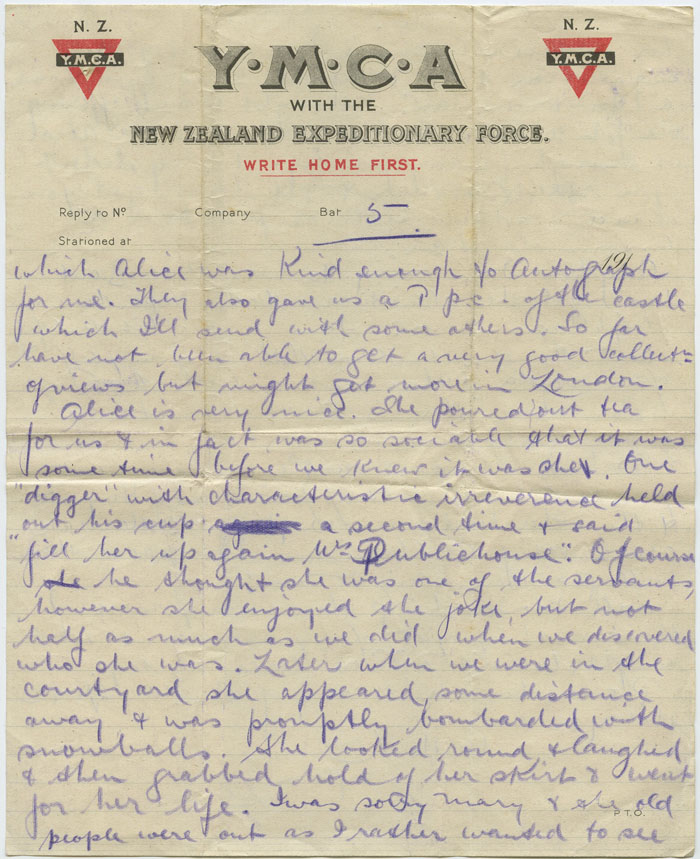 N. Z.
Y.M.C.A.
Y·M·C·A
WITH THE
NEW ZEALAND EXPEDITIONARY FORCE.
WRITE HOME FIRST.
N. Z.
Y.M.C.A.
Reply to No Company Bat 5
Stationed at 191
which Alice was kind enough to Autograph
for me. They also gave us a P p.c. of the castle
which I'll send with some others. So far
have not been able to get a very good collectn
of views but might get more in London.
Alice is very nice. She poured out tea
for us & in fact was so sociable that it was
some time before we knew it was she. One
"digger" with characteristic irreverence held
out his cup a second time & said
"fill her up again Mrs Publichouse". Of course
he thought she was one of the servants,
however she enjoyed the joke, but not
half as much as we did when we discovered
who she was. Later when we were in the
courtyard she appeared some distance
away & was promptly bombarded with
snowballs. She looked round & laughed
& then grabbed hold of her skirt & went
for her life. I was sorry Mary & the old
P.T.O.
people were out as I rather wanted to see